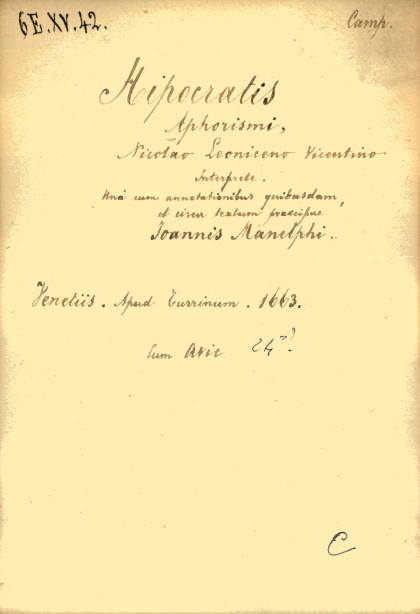 6E.XV.42.
Camp.
Hipocratis
Aphorismi,
Nicolao Leoniceno Vicentino
Interprete.
Unà cum annotationibus quibusdam,
et circa textum praecipue
Joannis Manelphi.
Venetiis. Apud Turrinum. 1663.
Cum Avic 24º
C